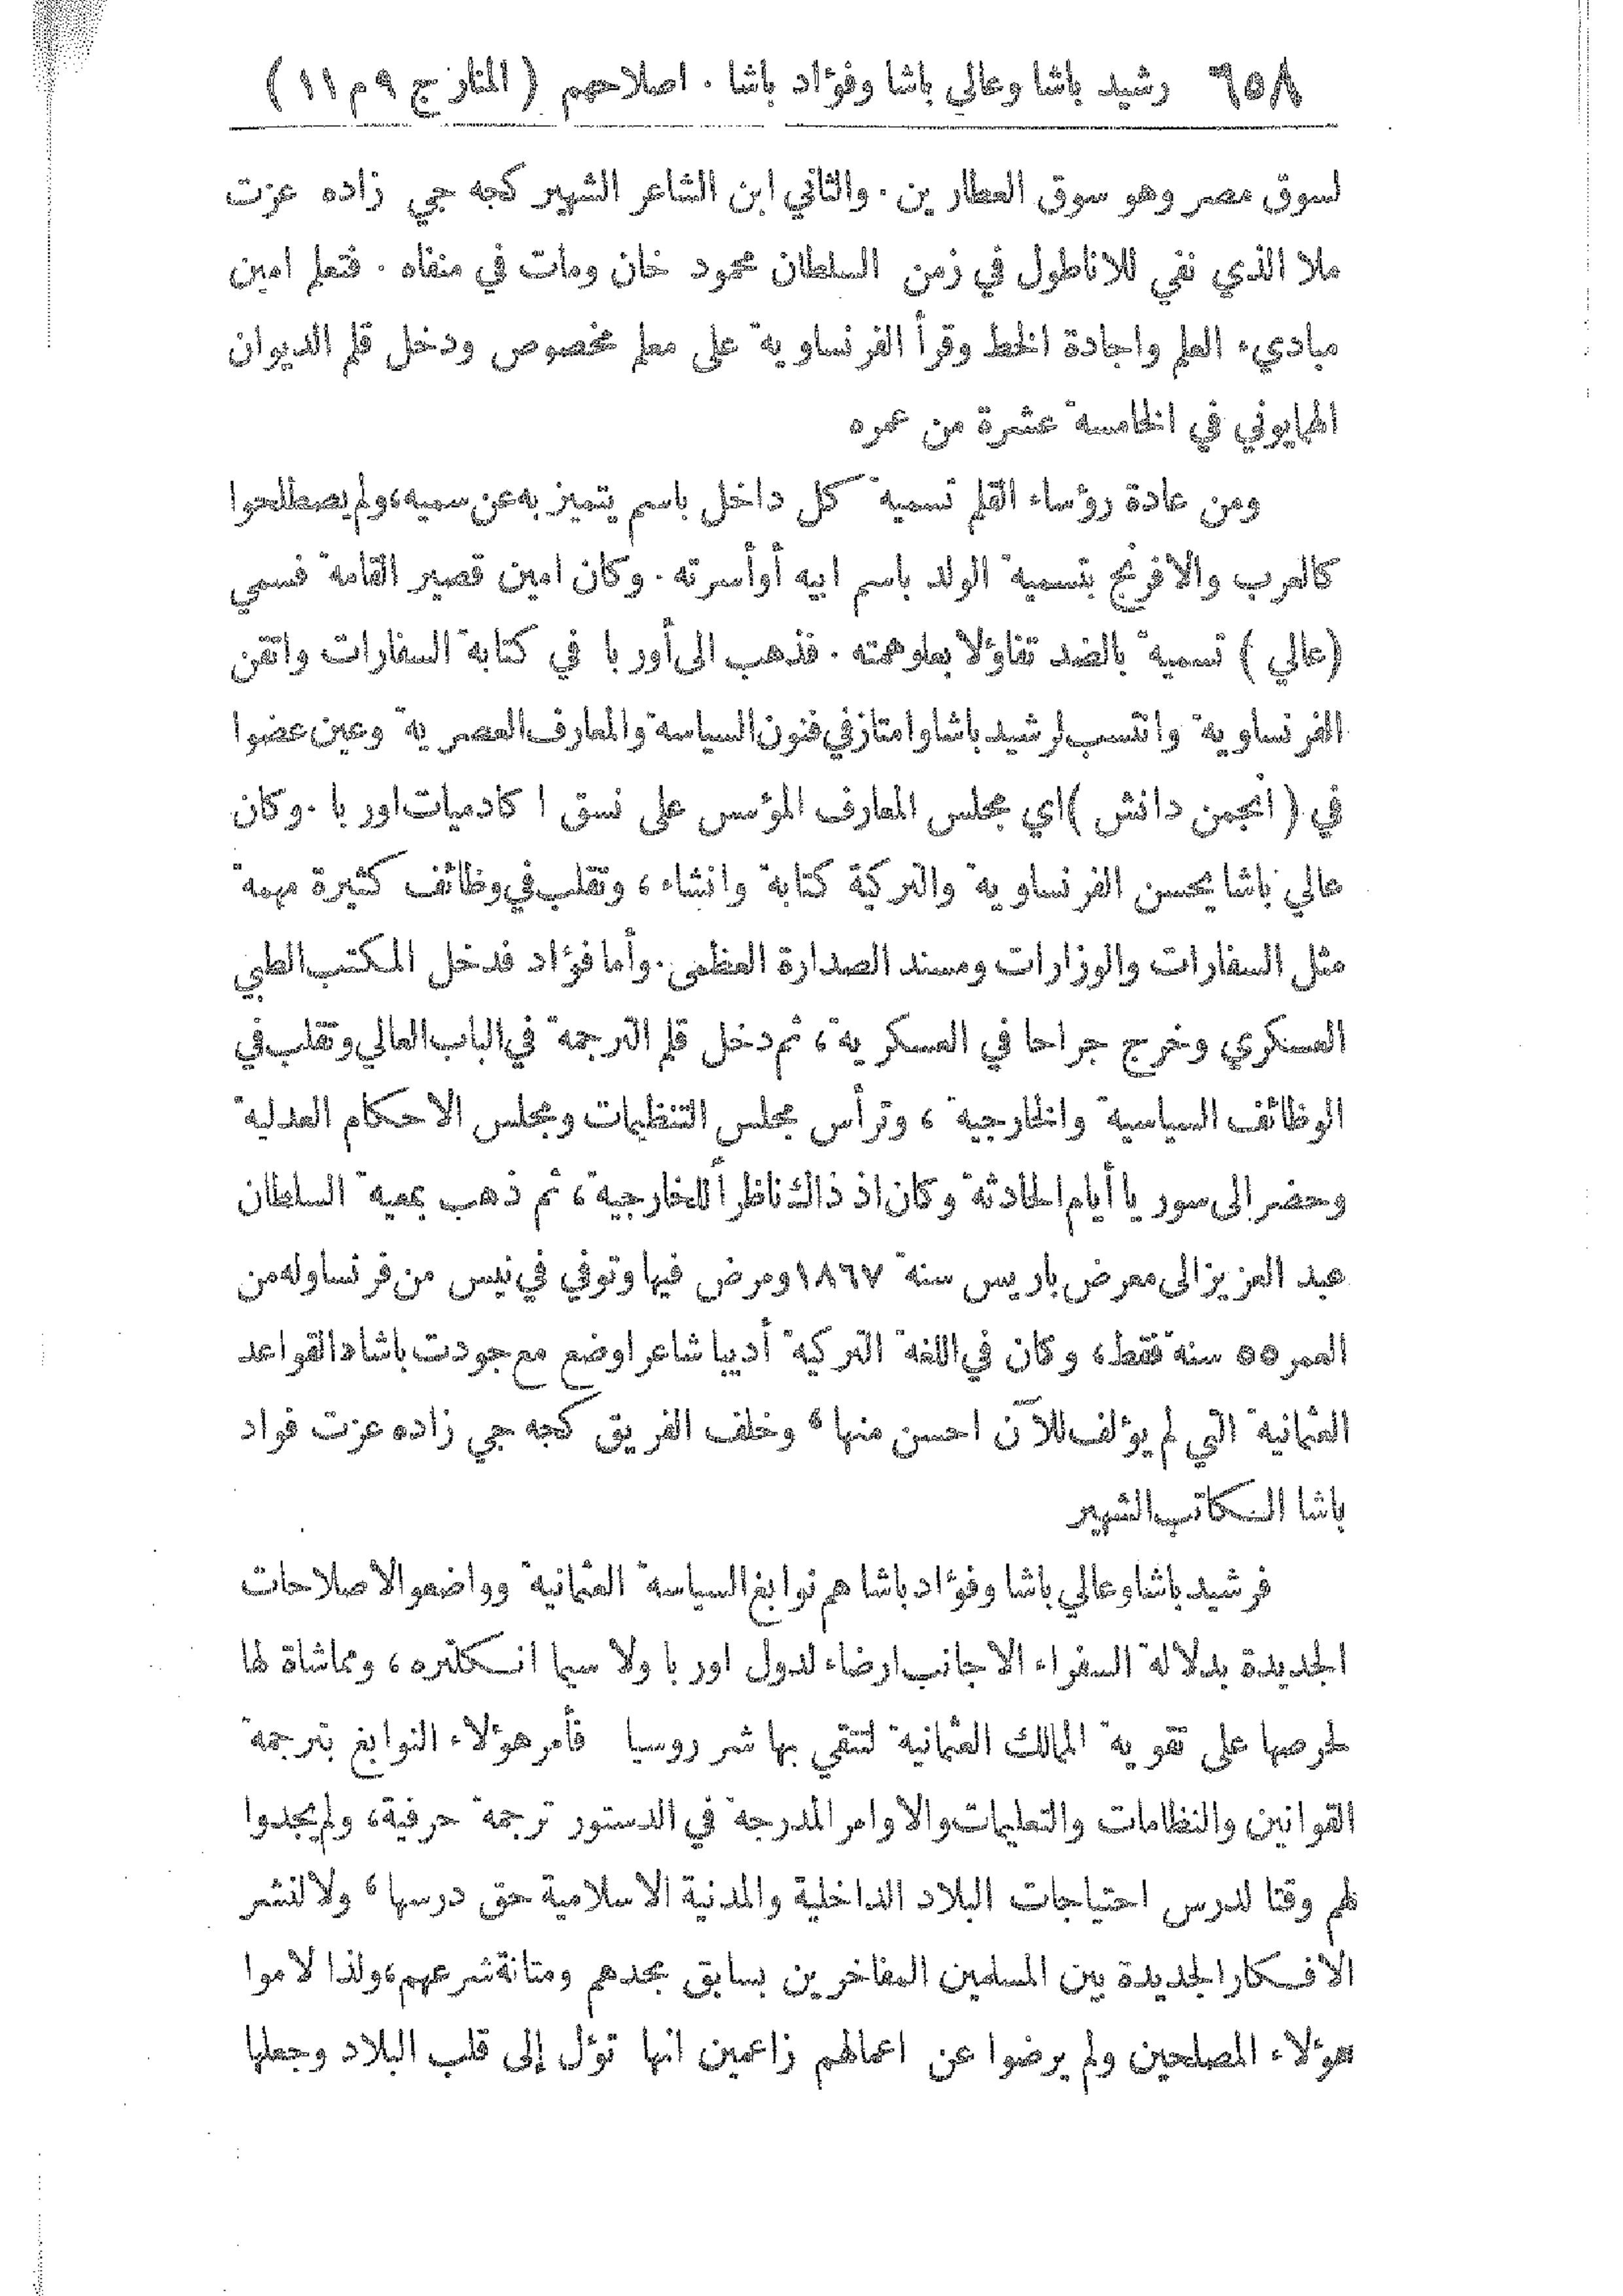 ٦٥٨ رشيد باشا وعالي باشا وفؤاد باشا . اصلاحهم ( المنار ج ٩ م ١١ )
لسوق مصر وهو سوق العطارين . والثاني ابن الشاعر الشهير كجه جي زاده عزت
ملا الذي نفي للاناطول في زمن السلطان محمود خان ومات في منفاه . فتعلم امين
مباديء العلم واجادة الخط وقرأ الفرنساوية على معلم مخصوص ودخل قلم الديوان
الهمايوني في الخامسة عشرة من عمره
ومن عادة رؤساء القلم تسمية كل داخل باسم يتميز به عن سميه، ولم يصطلحوا
كالعرب والافرنج بتسمية الولد باسم ابيه أو أسرته . وكان امين قصير القامة فسمي
(عالي ) تسمية بالضد تفاؤلا بعلو همته . فذهب الى أوربا في كتابة السفارات واتقن
الفرنساوية وانتسب لرشيد باشا وامتاز في فنون السياسة والمعارف العصرية وعين عضوا
في ( أنجمن دانش ) اي مجلس المعارف المؤسس على نسق اكادميات اوربا . وكان
عالي باشا يحسن الفرنساوية والتركية كتابة وانشاء ، وتقلب في وظائف كثيرة مهمة
مثل السفارات والوزارات ومسند الصدارة العظمى . وأما فؤاد فدخل المكتب الطبي
العسكري وخرج جراحا في العسكرية ، ثم دخل قلم الترجمة في الباب العالي وتقلب في
الوظائف السياسية والخارجية ، وترأس مجلس التنظيمات ومجلس الاحكام العدلية
وحضر الى سوريا أيام الحادثة وكان اذ ذاك ناظرا للخارجية ، ثم ذهب بمعية السلطان
عبد العزيز الى معرض باريس سنة ١٨٦٧ ومرض فيها وتوفي في نيس من فرنسا وله من
العمر ٥٥ سنة فقط ، وكان في اللغة التركية أديبا شاعرا وضع مع جودت باشا «القواعد
العثمانية التي لم يؤلف للآن احسن منها ، وخلف الفريق كجه جي زاده عزت فواد
باشا الكاتب الشهير
فرشيد باشا وعالي باشا وفؤاد باشا هم نوابغ السياسة العثمانية وواضعو الاصلاحات
الجديدة بدلالة السفراء الاجانب ارضاء لدول اوربا ولا سيما انكلتره ، ومماشاة لها
لحرصها على تقوية الممالك العثمانية لتتقي بها شر روسيا فأمر هؤلاء النوابغ بترجمة
القوانين والنظامات والتعليمات والاوامر المدرجة في الدستور ترجمة حرفية ، ولم يجدوا
لهم وقتا لدرس احتياجات البلاد الداخلية والمدنية الاسلامية حق درسها ، ولا لنشر
الافكار الجديدة بين المسلمين المفاخرين بسابق مجدهم ومتانة شرعهم ، ولذا لاموا
هؤلاء المصلحين ولم يرضوا عن اعمالهم زاعمين انها تؤل إلى قلب البلاد وجعلها